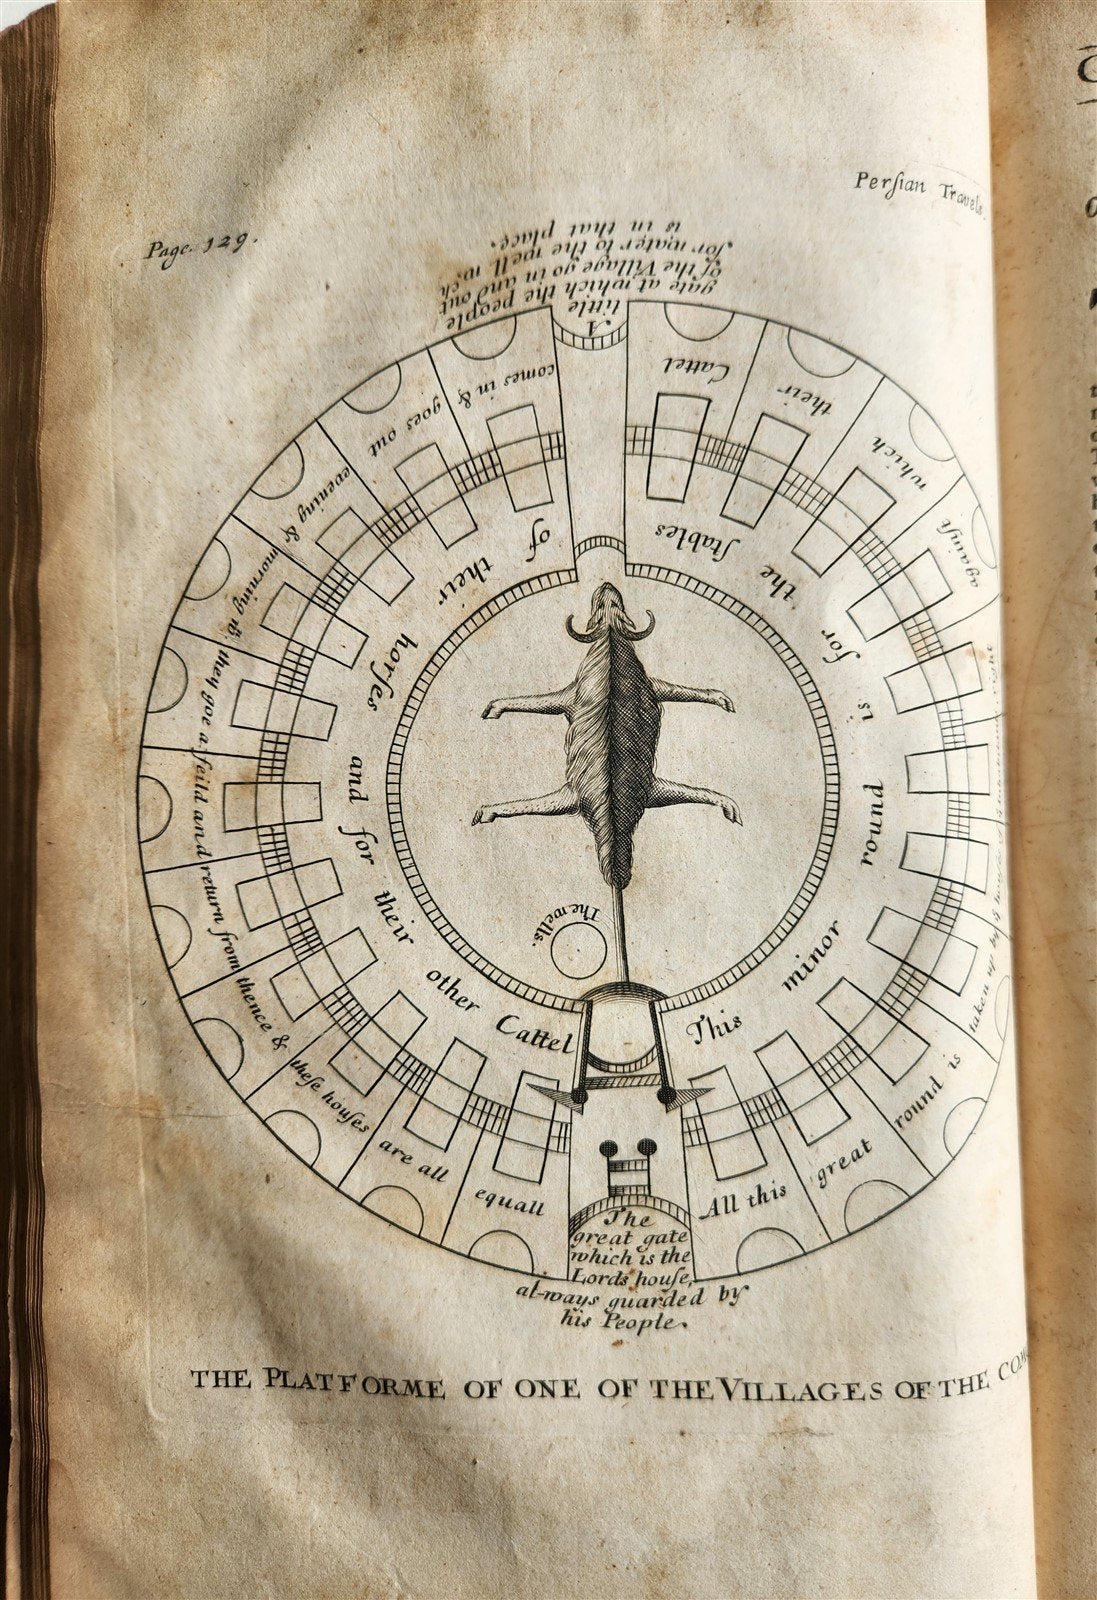 Page. 129.
Perſian Travels.
A
little
gate at which the people
of the Village go in and out
for water to the well wch
is in that place.
All this great round is taken up by right againſt which their Cattel comes in & goes out evening & morning they goe a feild and return from thence & theſe houſes are all equall
This minor round is for the ſtables of their horſes and for their other Cattel
The wells.
The
great gate
which is the
Lords houſe,
al-ways guarded by
his People.
THE PLATFORME OF ONE OF THE VILLAGES OF THE